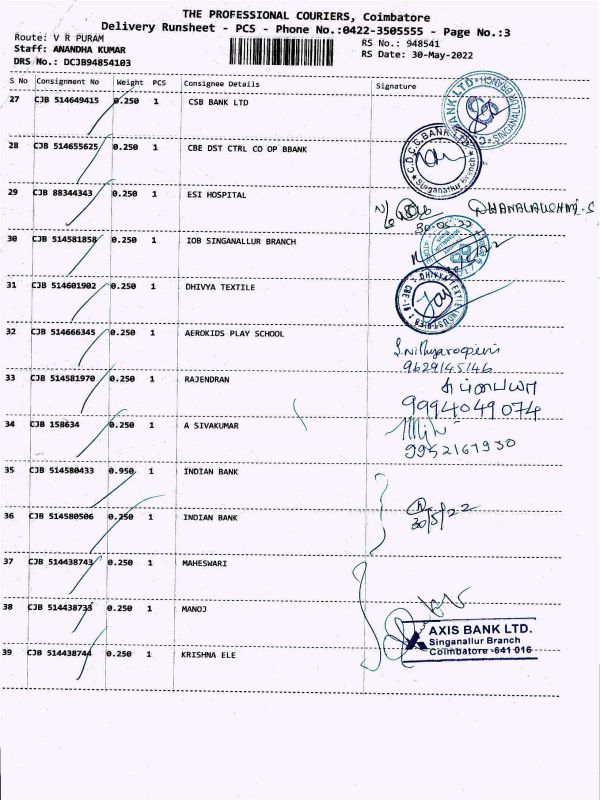 THE PROFESSIONAL COURIERS, Coimbatore
Delivery Runsheet - PCS - Phone No.:0422-3505555 - Page No.:3
Route: V R PURAM
RS No.: 948541
Staff: ANANDHA KUMAR
RS Date: 30-May-2022
DRS No.: DCJB94854103
S No Consignment No Weight PCS Consignee Details Signature
27 CJB 514649415 0.250 1 CSB BANK LTD
28 CJB 514655625 0.250 1 CBE DST CTRL CO OP BBANK
C.D.C.C. BANK LTD
Singanallur Branch
29 CJB 88344343 0.250 1 ESI HOSPITAL
DHANALAUCHMI-S
30-05-22
30 CJB 514581858 0.250 1 IOB SINGANALLUR BRANCH
31 CJB 514601902 0.250 1 DHIVYA TEXTILE
32 CJB 514666345 0.250 1 AEROKIDS PLAY SCHOOL
9629145146
33 CJB 514581970 0.250 1 RAJENDRAN
9994049074
34 CJB 158634 0.250 1 A SIVAKUMAR
9952167930
35 CJB 514580433 0.950 1 INDIAN BANK
36 CJB 514580506 0.250 1 INDIAN BANK
30/5/22
37 CJB 514438743 0.250 1 MAHESWARI
38 CJB 514438733 0.250 1 MANOJ
AXIS BANK LTD.
Singanallur Branch
Coimbatore -641 016
39 CJB 514438744 0.250 1 KRISHNA ELE